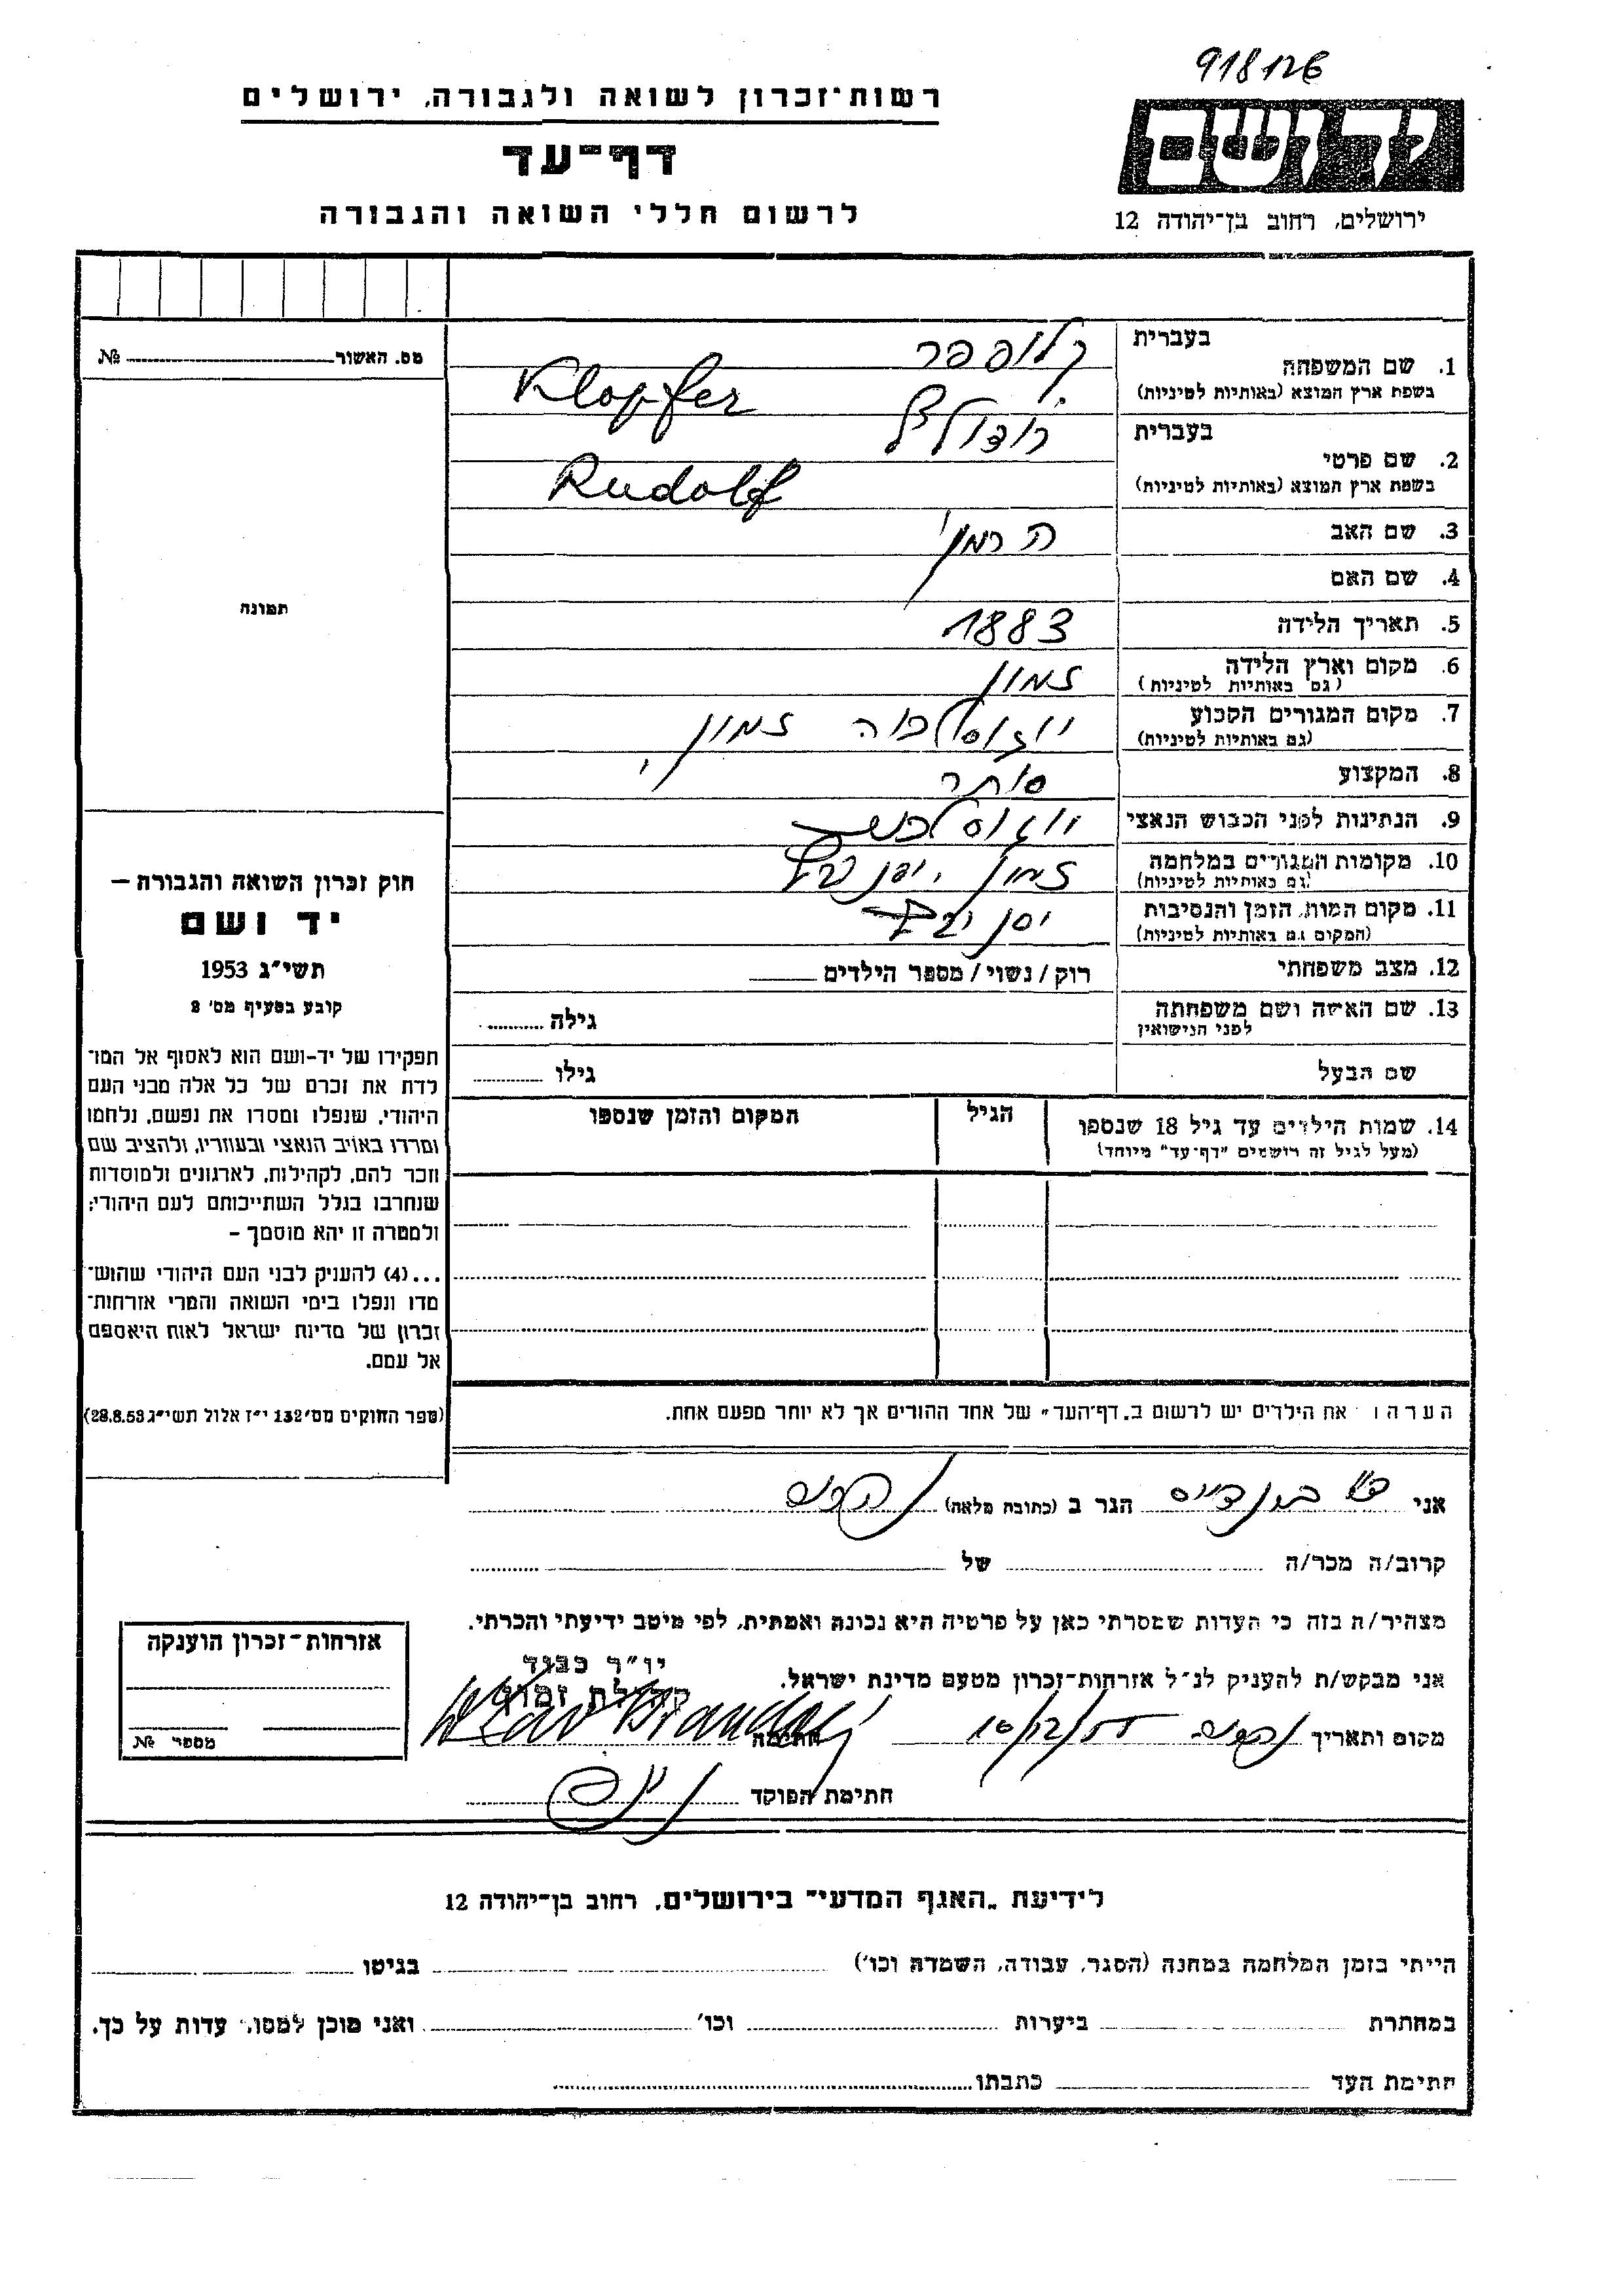 918126
רשות-זכרון לשואה ולגבורה, ירושלים
יד ושם
דף-עד
ירושלים, רחוב בן-יהודה 12
לרשום חללי השואה והגבורה
מס. האשור № 
בעברית קלופפר
1. שם המשפחה
בשפת ארץ המוצא (באותיות לטיניות) Klopfer
בעברית רודולף
2. שם פרטי
בשפת ארץ המוצא (באותיות לטיניות) Rudolf
3. שם האב הרמן
4. שם האם
תמונה
5. תאריך הלידה 1883
6. מקום וארץ הלידה זמון
(גם באותיות לטיניות)
7. מקום המגורים הקבוע יוגוסלביה זמון
(גם באותיות לטיניות)
8. המקצוע סוחר
9. הנתינות לפני הכבוש הנאצי יוגוסלבית
10. מקומות המגורים במלחמה זמון, יסנובץ
(גם באותיות לטיניות)
11. מקום המות, הזמן והנסיבות יסנובץ
(המקום גם באותיות לטיניות)
12. מצב משפחתי רוק / נשוי / מספר הילדים
13. שם האשה ושם משפחתה גילה
לפני הנישואין
שם הבעל גילו
14. שמות הילדים עד גיל 18 שנספו הגיל המקום והזמן שנספו
(מעל לגיל זה רושמים "דף-עד" מיוחד)
חוק זכרון השואה והגבורה –
יד ושם
תשי"ג 1953
קובע בסעיף מס' 2
תפקידו של יד-ושם הוא לאסוף אל המו־
לדת את זכרם של כל אלה מבני העם
היהודי, שנפלו ומסרו את נפשם, נלחמו
ומרדו באויב הנאצי ובעוזריו, ולהציב שם
וזכר להם, לקהילות, לארגונים ולמוסדות
שנחרבו בגלל השתייכותם לעם היהודי;
ולמטרה זו יהא מוסמך –
...(4) להעניק לבני העם היהודי שהוש־
מדו ונפלו בימי השואה והמרי אזרחות־
זכרון של מדינת ישראל לאות היאספם
אל עמם.
(ספר החוקים מס' 132 י"ז אלול תשי"ג 28.8.53)
הערה: את הילדים יש לרשום ב"דף-העד" של אחד ההורים אך לא יותר מפעם אחת.
אני הגר ב (כתובת מלאה)
קרוב/ה מכר/ה של
מצהיר/ה בזה כי העדות שמסרתי כאן על פרטיה היא נכונה ואמתית, לפי מיטב ידיעתי והכרתי.
אני מבקש/ת להעניק לנ"ל אזרחות-זכרון מטעם מדינת ישראל.
יו"ר כבוד
קהילת זמון
מקום ותאריך 16/12/55 חתימה
חתימת הפוקד
אזרחות-זכרון הוענקה
מספר №
לידיעת "האגף המדעי" בירושלים, רחוב בן-יהודה 12
הייתי בזמן המלחמה במחנה (הסגר, עבודה, השמדה וכו') בגיטו
במחתרת ביערות וכו' ואני מוכן למסור עדות על כך.
חתימת העד כתבתו